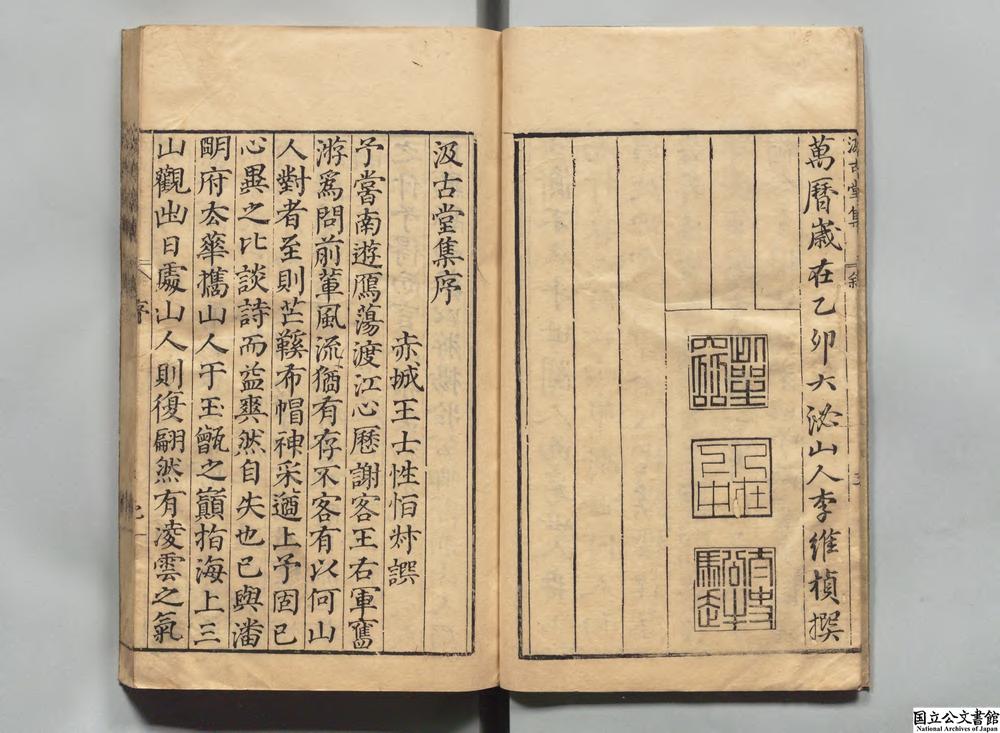 萬曆歲在乙卯大泌山人李維楨撰
汲古堂集序
赤城王士性恒叔譔
予嘗南遊鴈蕩渡江心歷謝客王右軍舊
游爲問前軰風流猶有存不客有以何山
人對者至則芒鞵布帽神采遒上予固已
心異之比談詩而益爽然自失也已與潘
眀府太華攜山人于玉甑之巔指海上三
山觀出日處山人則復翩然有凌雲之氣
序
汲古堂集
国立公文書館
National Archives of Japan